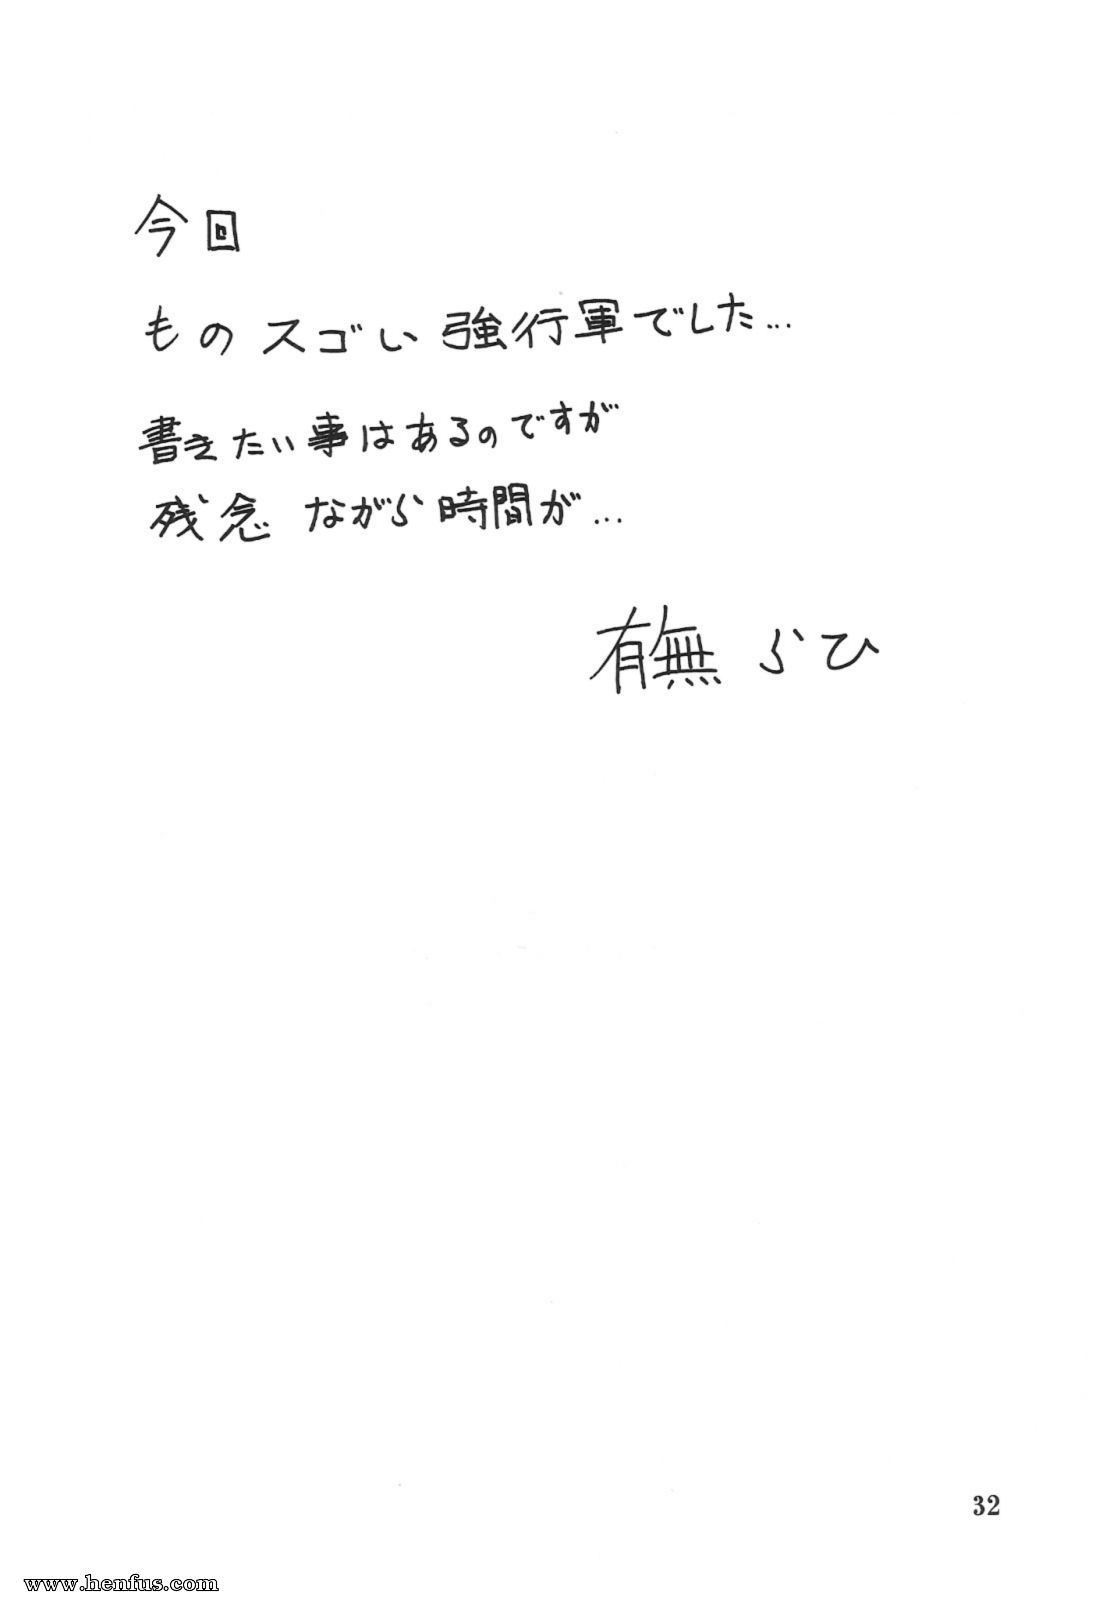 今回
ものスゴい強行軍でした...
書きたい事はあるのですが
残念ながら時間が...
有無らひ
32
www.henfus.com